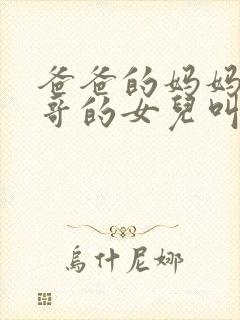 爸爸的妈妈
哥的女兒叫
烏什尼娜